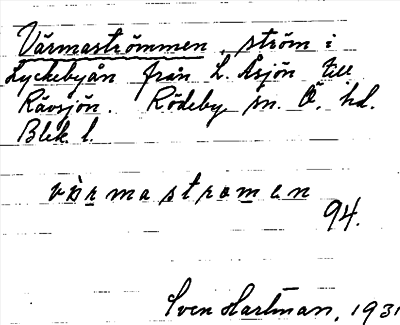 Värmaströmmen, ström i
Lyckebyån från L. Åsjön till
Rävsjön. Rödeby sn. Ö. hd.
Blek. l.
värmastrœmen
94.
Sven Hartman, 1931